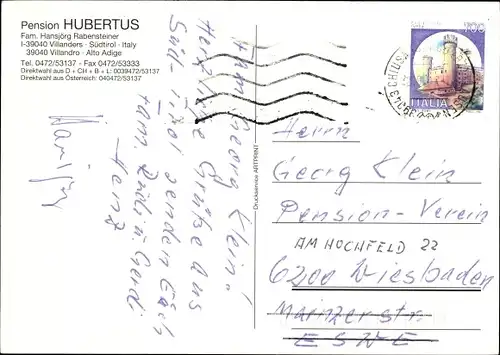 Pension HUBERTUS
Fam. Hansjörg Rabensteiner
I-39040 Villanders · Südtirol · Italy
39040 Villandro · Alto Adige
Tel. 0472/53137 - Fax 0472/53333
Direktwahl aus D + CH + B + L: 0039472/53137
Direktwahl aus Österreich: 040472/53137
Fam. Georg Klein!
Herzliche Grüße aus
Süd-Tirol senden Euch
Fam. Rudi u. Gerdi
Heinz
Druckservice ARTPRINT
700
ITALIA
CHIUSA
Herrn
Georg Klein
Pension-Verein
AM HOCHFELD 22
6200 Wiesbaden
Mainzerstr.
ESWE